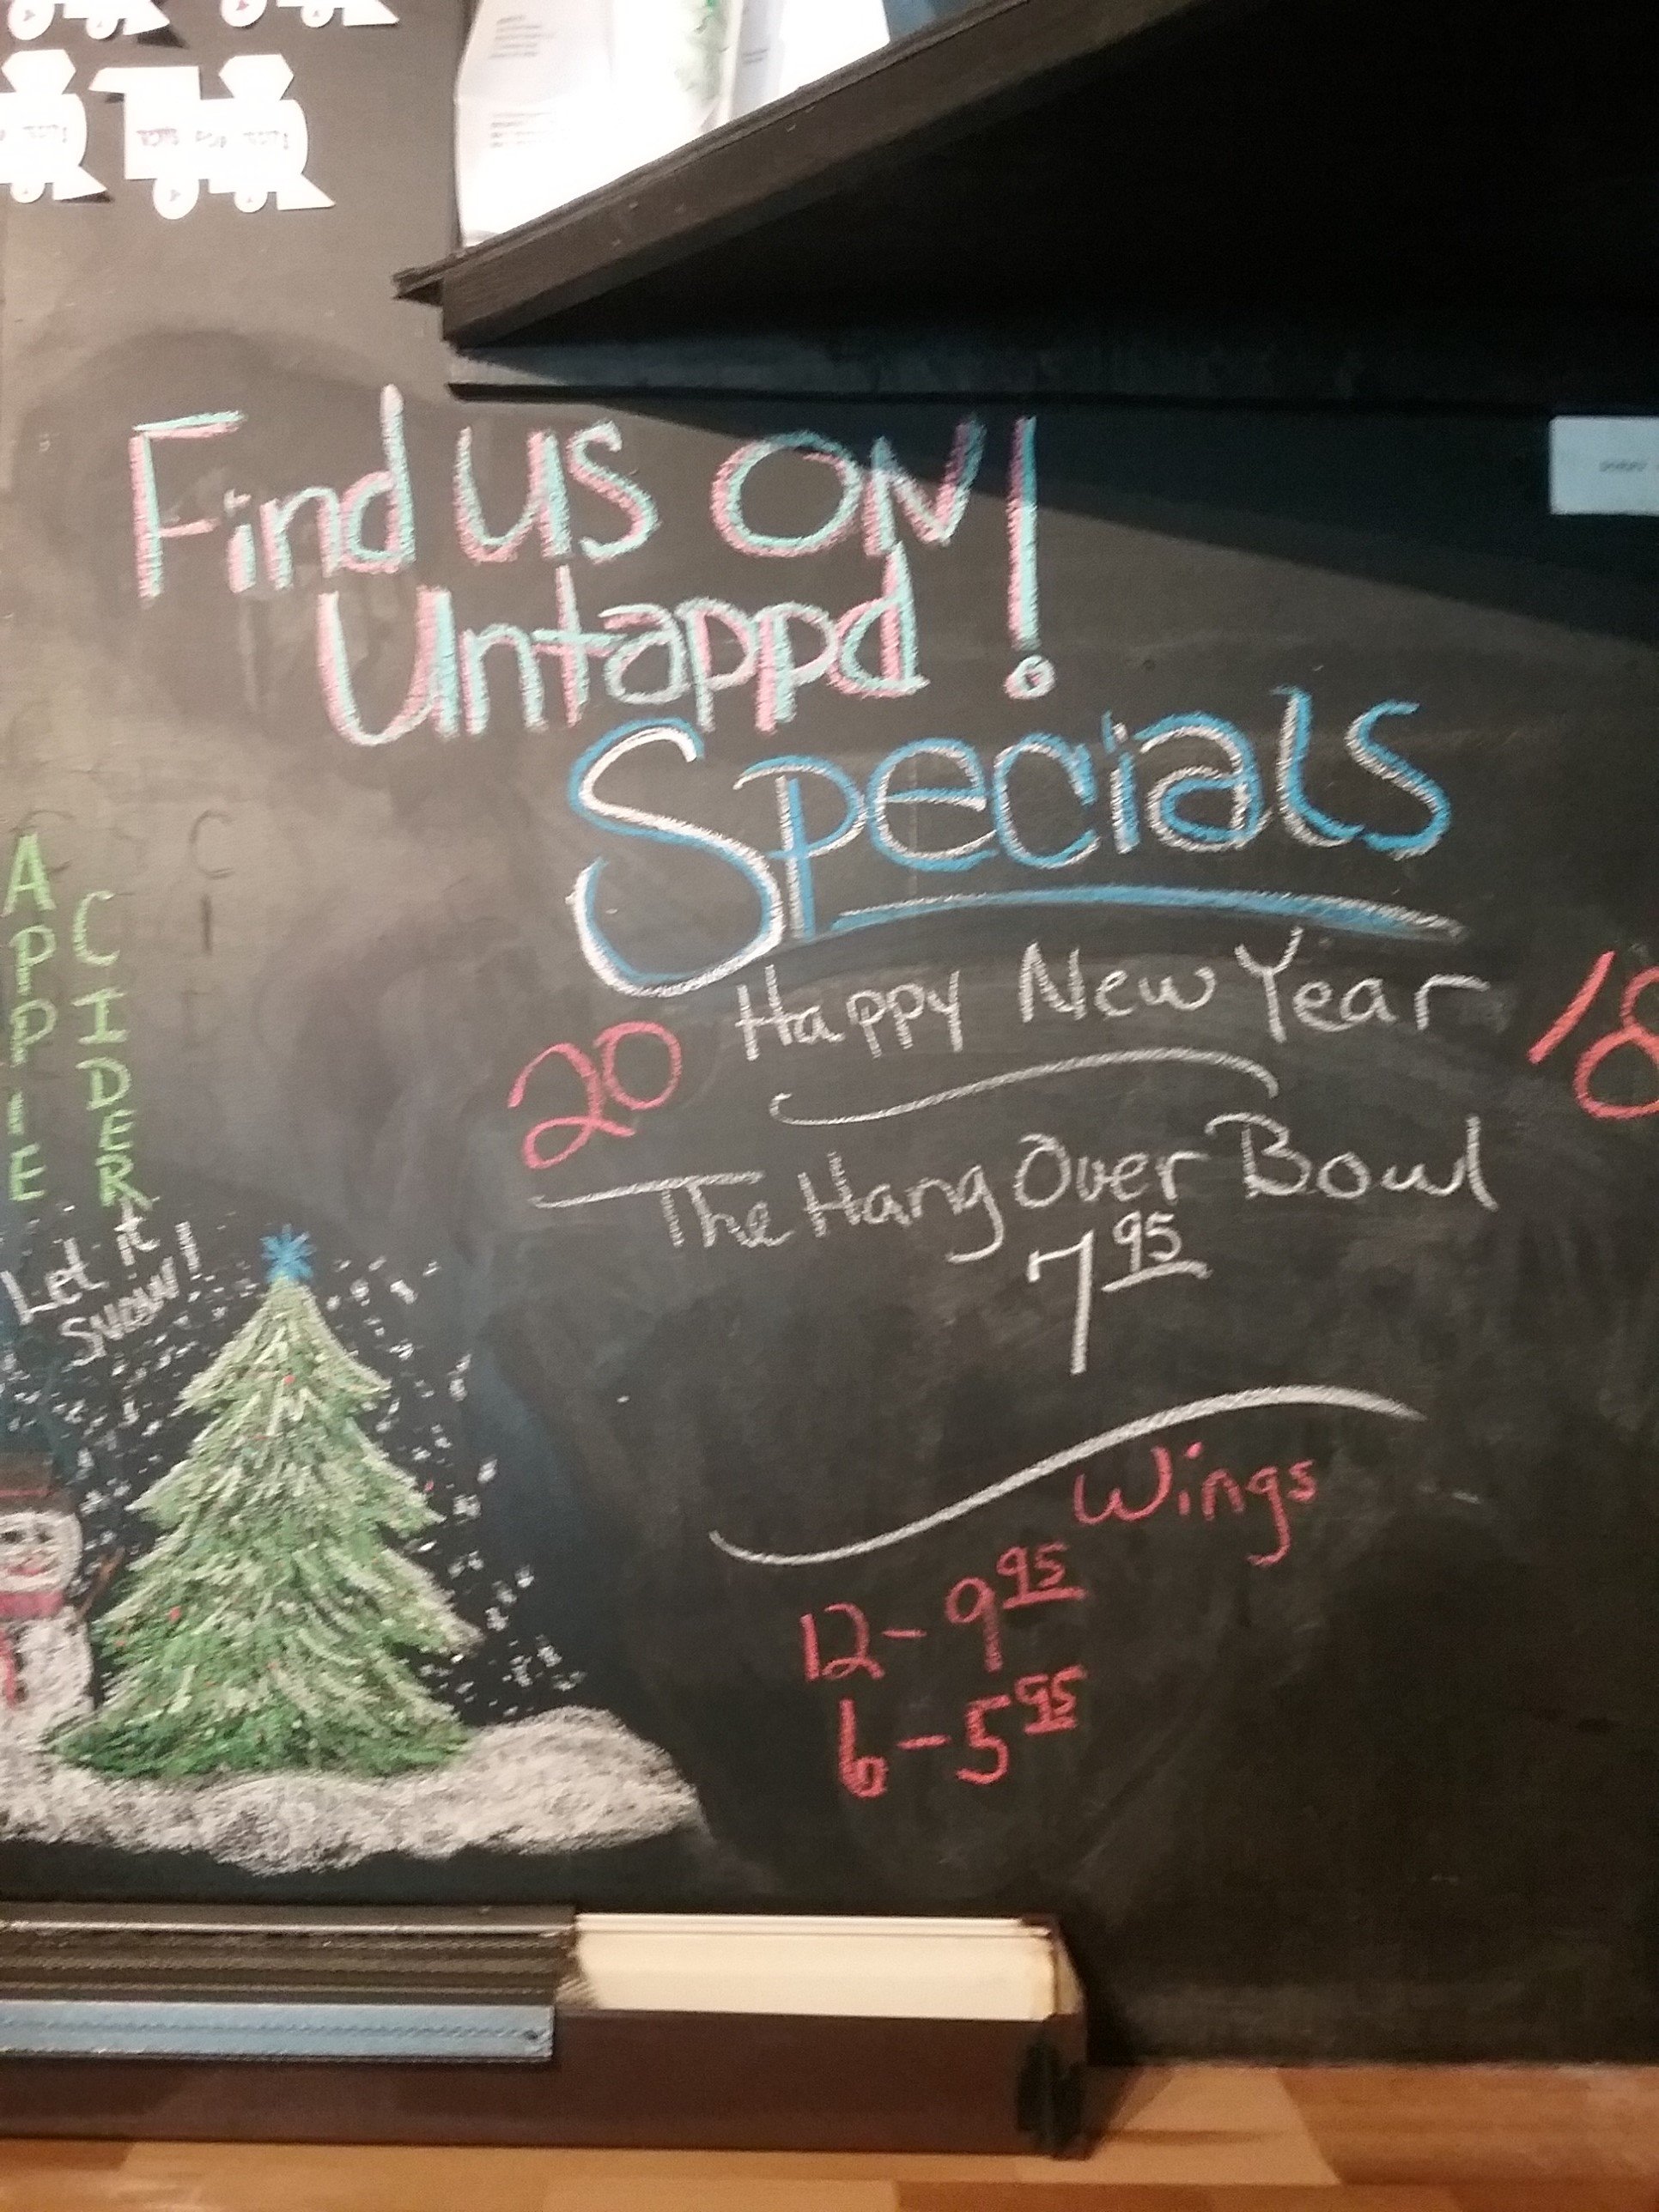 Find us ON
Untappd!
Specials
20 Happy New Year 18
The Hang Over Bowl
7 95
Wings
12 - 9 95
6 - 5 95
APPIE
CIDER
Let it
Snow!